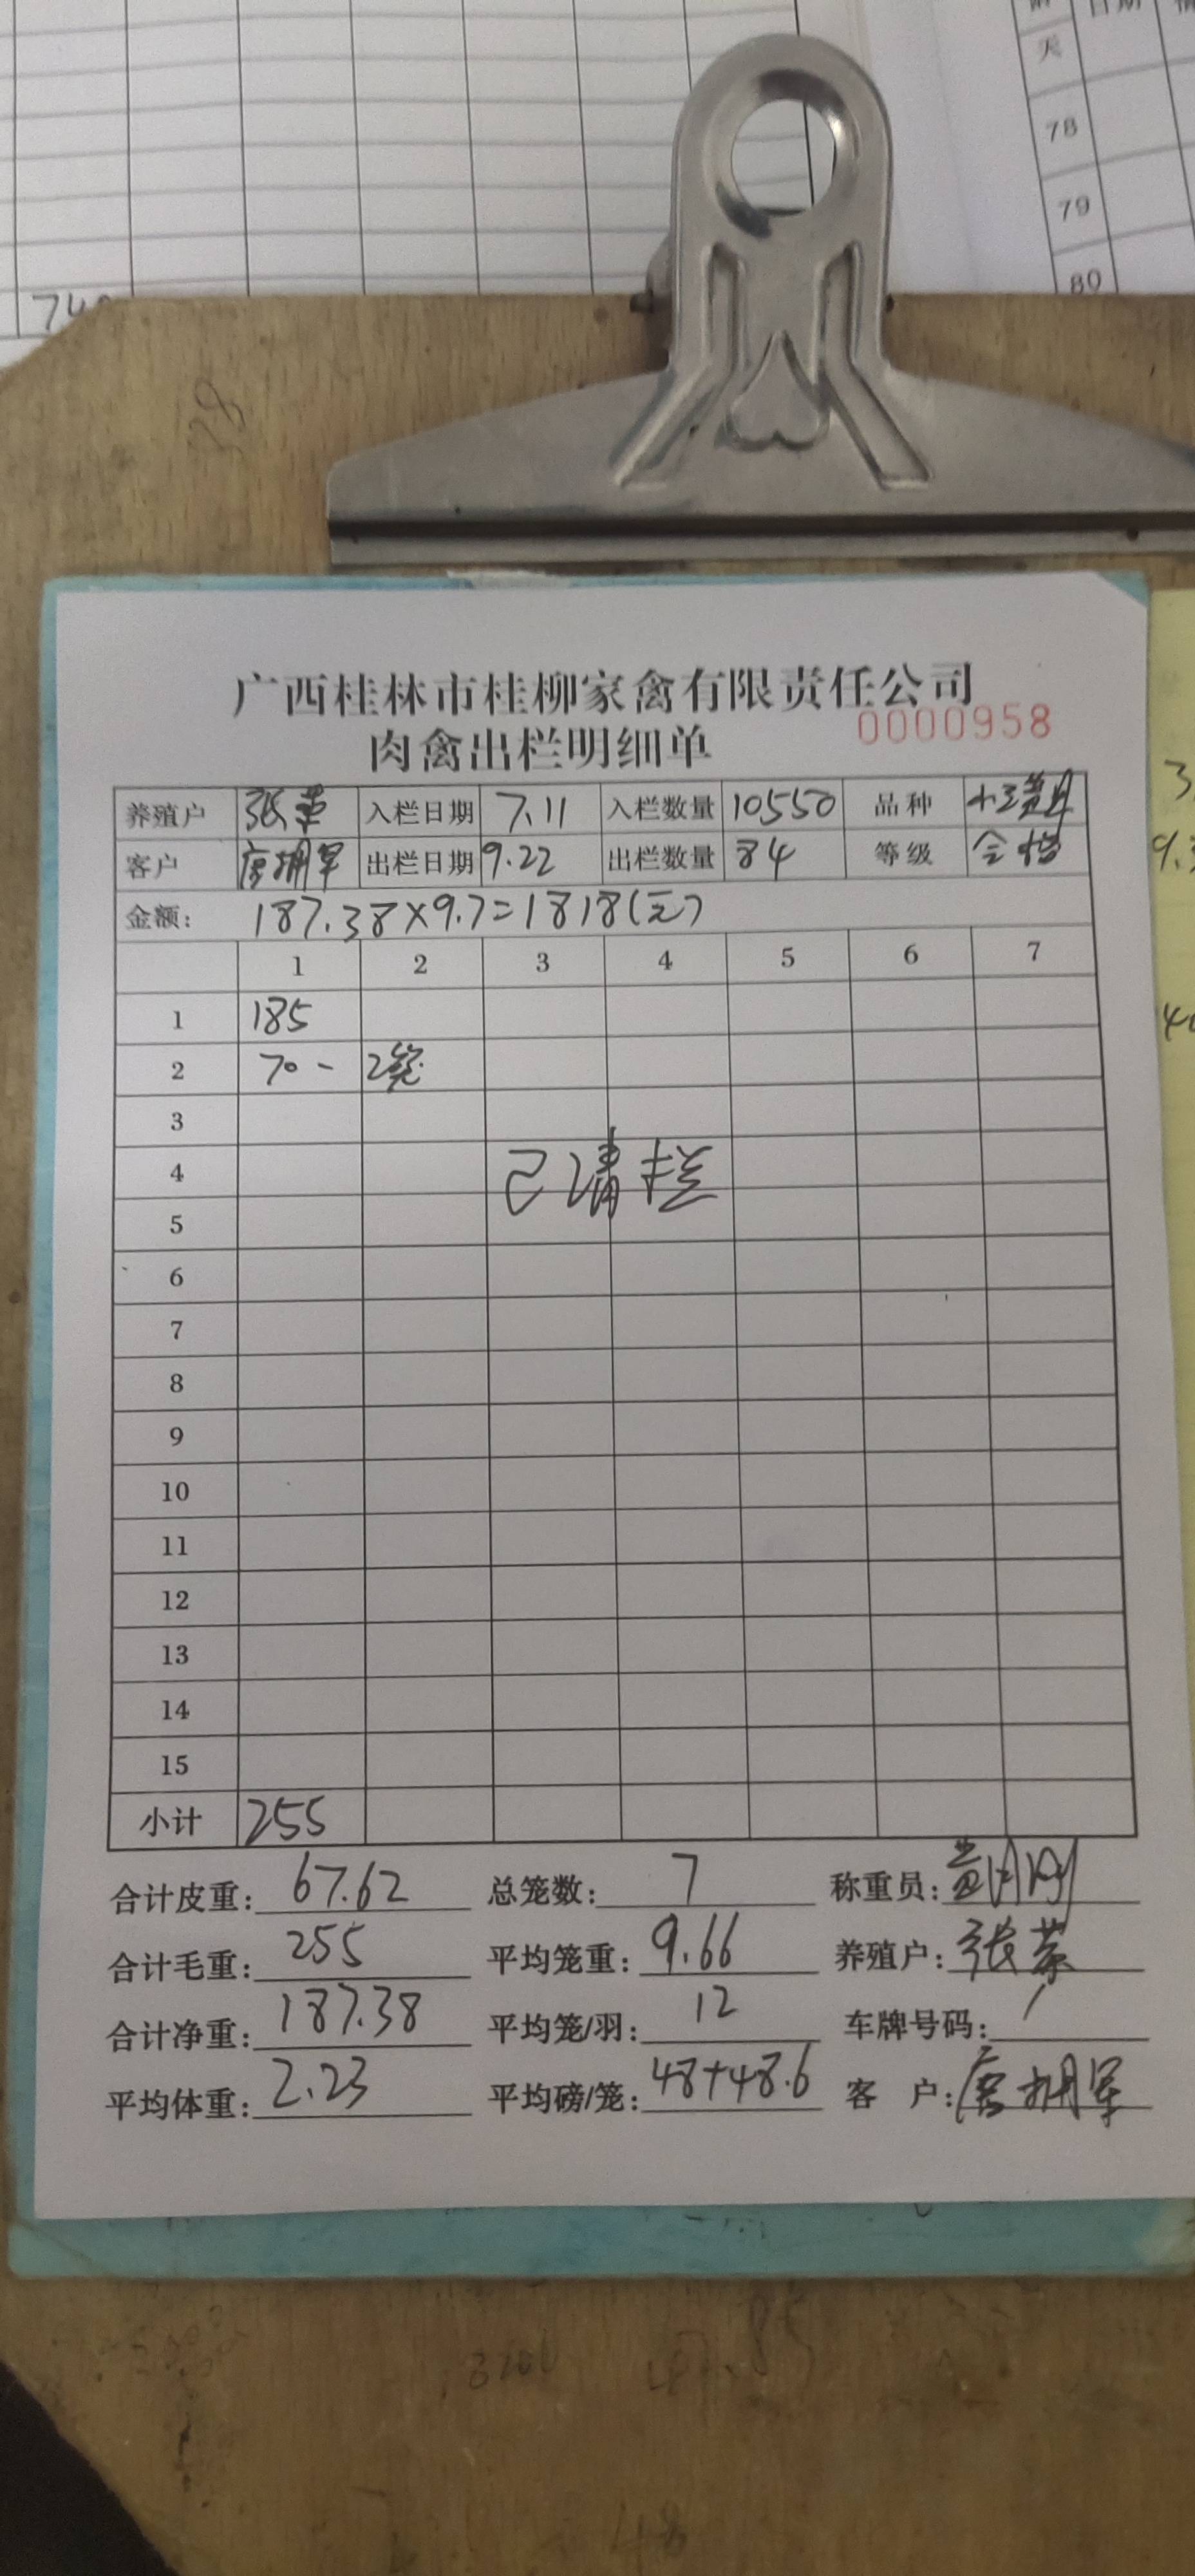 天
78
79
80
广西桂林市桂柳家禽有限责任公司
0000958
肉禽出栏明细单
养殖户 张 入栏日期 7.11 入栏数量 10550 品种
客户 出栏日期 9.22 出栏数量 84 等级
金额: 187.38×9.7=1818(元)
1 2 3 4 5 6 7
1 185
2 70 - 2笼
3
4 已清栏
5
6
7
8
9
10
11
12
13
14
15
小计 255
合计皮重: 67.62 总笼数: 7 称重员:
合计毛重: 255 平均笼重: 9.66 养殖户: 张
合计净重: 187.38 平均笼/羽: 12 车牌号码: /
平均体重: 2.23 平均磅/笼: 48+48.6 客 户: